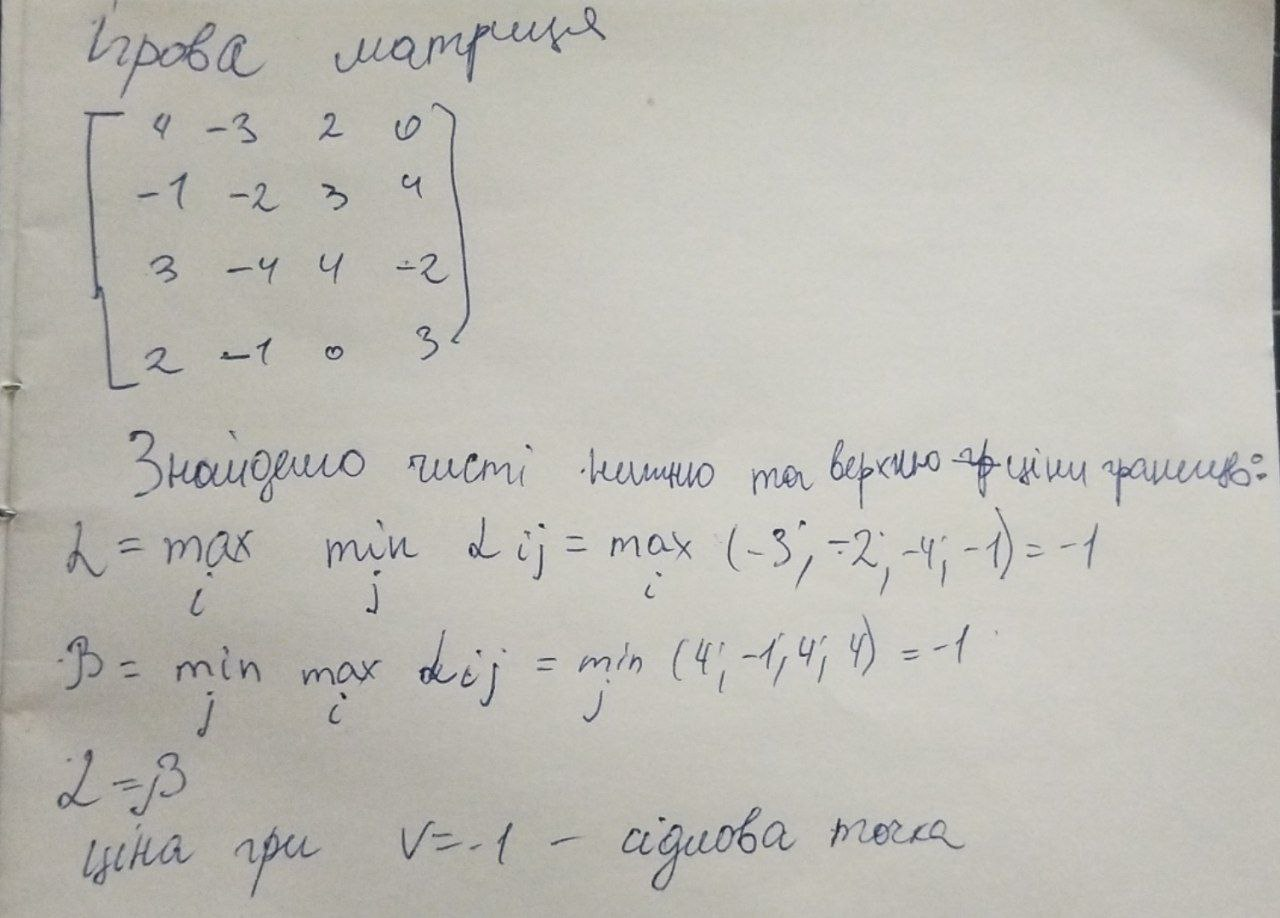 Ігрова матриця
4 -3 2 0
-1 -2 3 4
3 -4 4 -2
2 -1 0 3
Знайдемо чисті нижню та верхню ціни границю:
α = max min α ij = max (-3; -2; -4; -1) = -1
i j i
β = min max α ij = min (4; -1; 4; 4) = -1
j i j
α = β
ціна гри v = -1 – сідлова точка